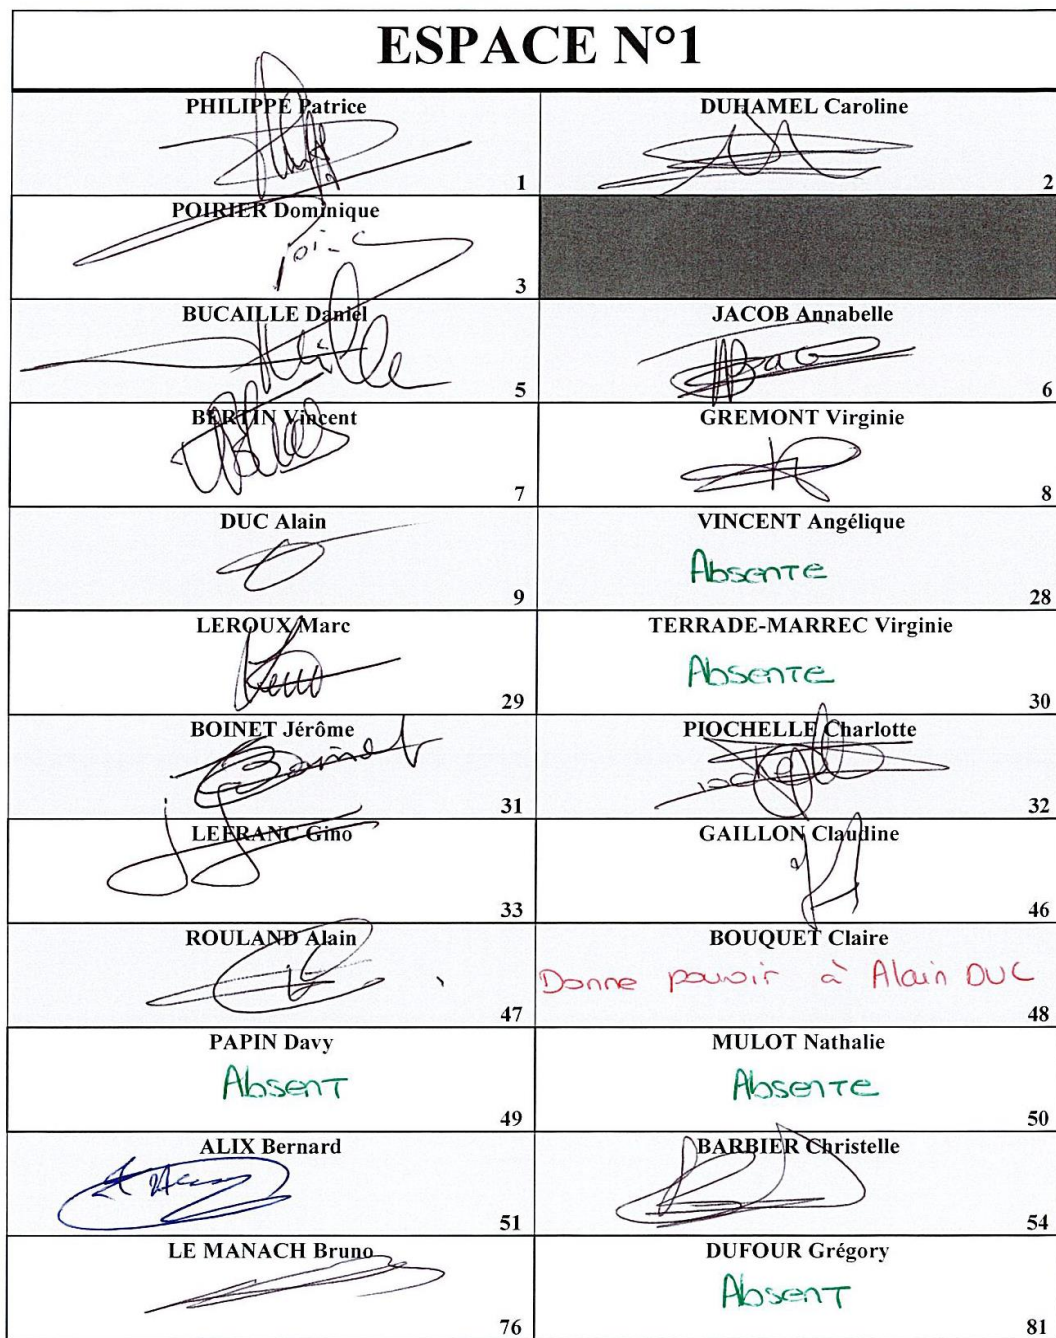 ESPACE N°1
PHILIPPE Patrice
1
DUHAMEL Caroline
2
POIRIER Dominique
3
BUCAILLE Daniel
5
JACOB Annabelle
6
BERTIN Vincent
7
GREMONT Virginie
8
DUC Alain
9
VINCENT Angélique
Absente
28
LEROUX Marc
29
TERRADE-MARREC Virginie
Absente
30
BOINET Jérôme
31
PIOCHELLE Charlotte
32
LEFRANC Gino
33
GAILLON Claudine
46
ROULAND Alain
47
BOUQUET Claire
Donne pouvoir à Alain DUC
48
PAPIN Davy
Absent
49
MULOT Nathalie
Absente
50
ALIX Bernard
51
BARBIER Christelle
54
LE MANACH Bruno
76
DUFOUR Grégory
Absent
81